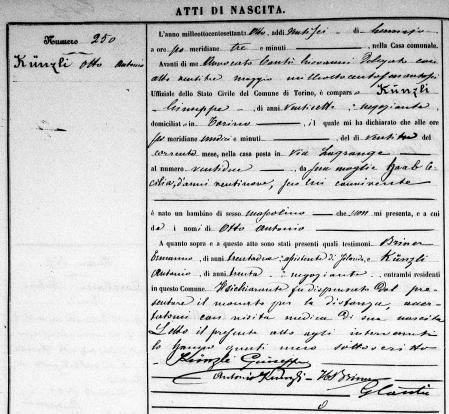 ATTI DI NASCITA.
Numero 250
Künzli Otto Antonio
L'anno milleottocentosettantaotto, addì ventisei di gennajo
a ore po meridiane tre e minuti , nella Casa comunale.
Avanti di me Avvocato Giovanni Delegato con
atto ventitre maggio milleottocento
Uffiziale dello Stato Civile del Comune di Torino, è comparso Künzli
Giuseppe, di anni ventisette negoziante
domiciliato in Torino, il quale mi ha dichiarato che alle ore
po meridiane undici e minuti , del dì ventitre del
corrente mese, nella casa posta in Via Lagrange
al numero ventidue, da sua moglie Haab Ce-
cilia, d'anni ventinove, seco lui convivente
è nato un bambino di sesso mascolino che non mi presenta, e a cui
dà i nomi di Otto Antonio
A quanto sopra e a questo atto sono stati presenti quali testimoni Briner
Ermanno, di anni trentadue, assistente di filanda, e Künzli
Antonio, di anni trenta negoziante, entrambi residenti
in questo Comune. Il dichiarante fu dispensato dal pre-
sentare il neonato per la distanza, accer-
tatomi con visita medica di sua nascita
Letto il presente atto agli intervenuti
lo hanno questi meco sottoscritto
Künzli Giuseppe
Antonio Künzli H. Briner